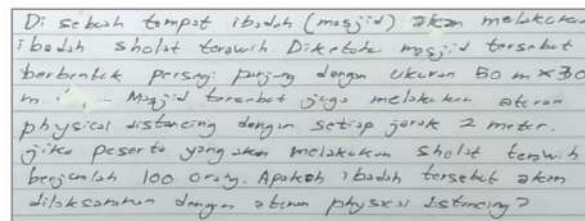 Di sebuah tempat ibadah (masjid) akan melakukan
ibadah sholat terawih Diketahui masjid tersebut
berbentuk persegi panjang dengan ukuran 50 m x 30
m. Masjid tersebut juga melakukan aturan
physical distancing dengan setiap jarak 2 meter.
jika peserta yang akan melakukan sholat terawih
berjumlah 100 orang. Apakah ibadah tersebut akan
dilaksanakan dengan aturan physical distancing?